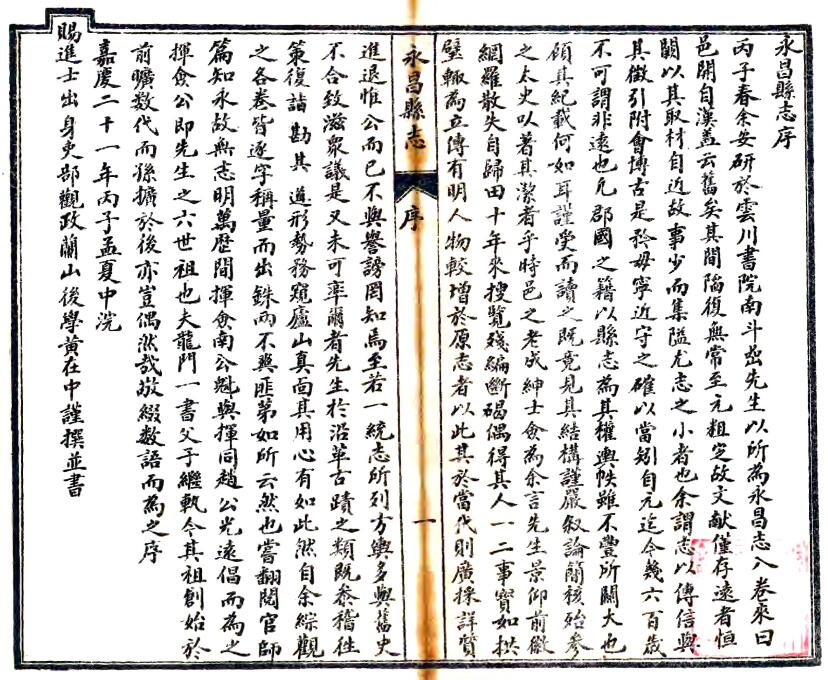 永昌縣志序
丙子春余安研於雲川書院南斗嵒先生以所為永昌志八卷來曰
邑開自漢盖云舊矣其間陷復無常至元粗定故文獻僅存遠者恒
闕以其取材自近故事少而集隘尤志之小者也余謂志以傳信與
其徵引附會博古是矜毋寧近守之確以當矧自元迄今幾六百歲
不可謂非遠也凡郡國之籍以縣志為其權輿帙雖不豐所關大也
顧其紀載何如耳謹受而讀之既竟見其結構謹嚴叙論簡核始參
之太史以著其潔者乎時邑之老成紳士僉為余言先生景仰前徽
網羅散失自歸田十年來搜覽殘編斷碣偶得其人一二事寶如拱
璧輙為立傳有明人物較增於原志者以此其於當代則廣採詳質
永昌縣志
序
一
進退惟公而已不與譽謗罔知焉至若一統志所列方輿多與舊史
不合致滋眾議是又未可率爾者先生於沿革古蹟之類既叅稽往
策復詣勘其道形勢務窺廬山真面其用心有如此然自余綜觀
之各卷皆逐字稱量而出銖兩不爽匪第如所云然也嘗翻閱官師
篇知永故無志明萬歷間揮僉南公魁與揮同趙公光遠倡而為之
揮僉公即先生之六世祖也夫龍門一書父子繼執今其祖創始於
前曠数代而孫擴於後亦豈偶然哉故綴数語而為之序
嘉慶二十一年丙子孟夏中浣
賜進士出身吏部觀政蘭山後學黃在中謹撰並書